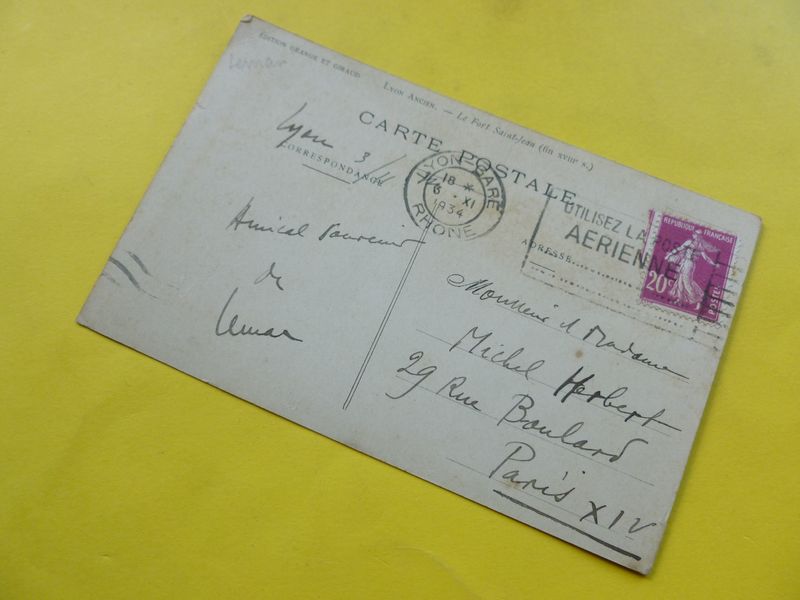 EDITION GRANGE ET GIRAUD
Lyon Ancien. — Le Fort Saint-Jean (fin XVIIIe s.)
CARTE POSTALE
CORRESPONDANCE
Lyon 3/11
Amical Souvenir
de
LYON-GARE
18 *
XI
1934
RHONE
UTILISEZ LA POSTE
AERIENNE
REPUBLIQUE FRANÇAISE
20c
POSTES
ADRESSE
Monsieur et Madame
Michel Herbert
29 Rue Boulard
Paris XIV